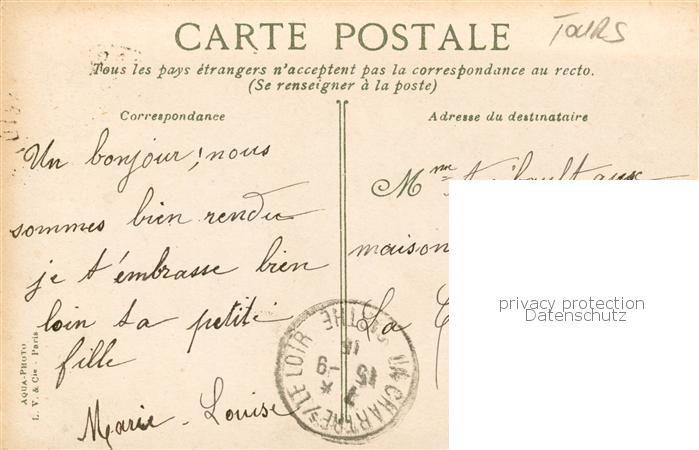 CARTE POSTALE
TOURS
Tous les pays étrangers n'acceptent pas la correspondance au recto.
(Se renseigner à la poste)
Correspondance
Un bonjour, nous
sommes bien rendu
je t'émbrasse bien
loin ta petite
fille
Marie-Louise
AQUA-PHOTO
L. V. & Cie - Paris
Adresse du destinataire
Mme
maison
La
LA CHARTRE S/LE LOIR SARTHE
15
15 - 9
privacy protection
Datenschutz